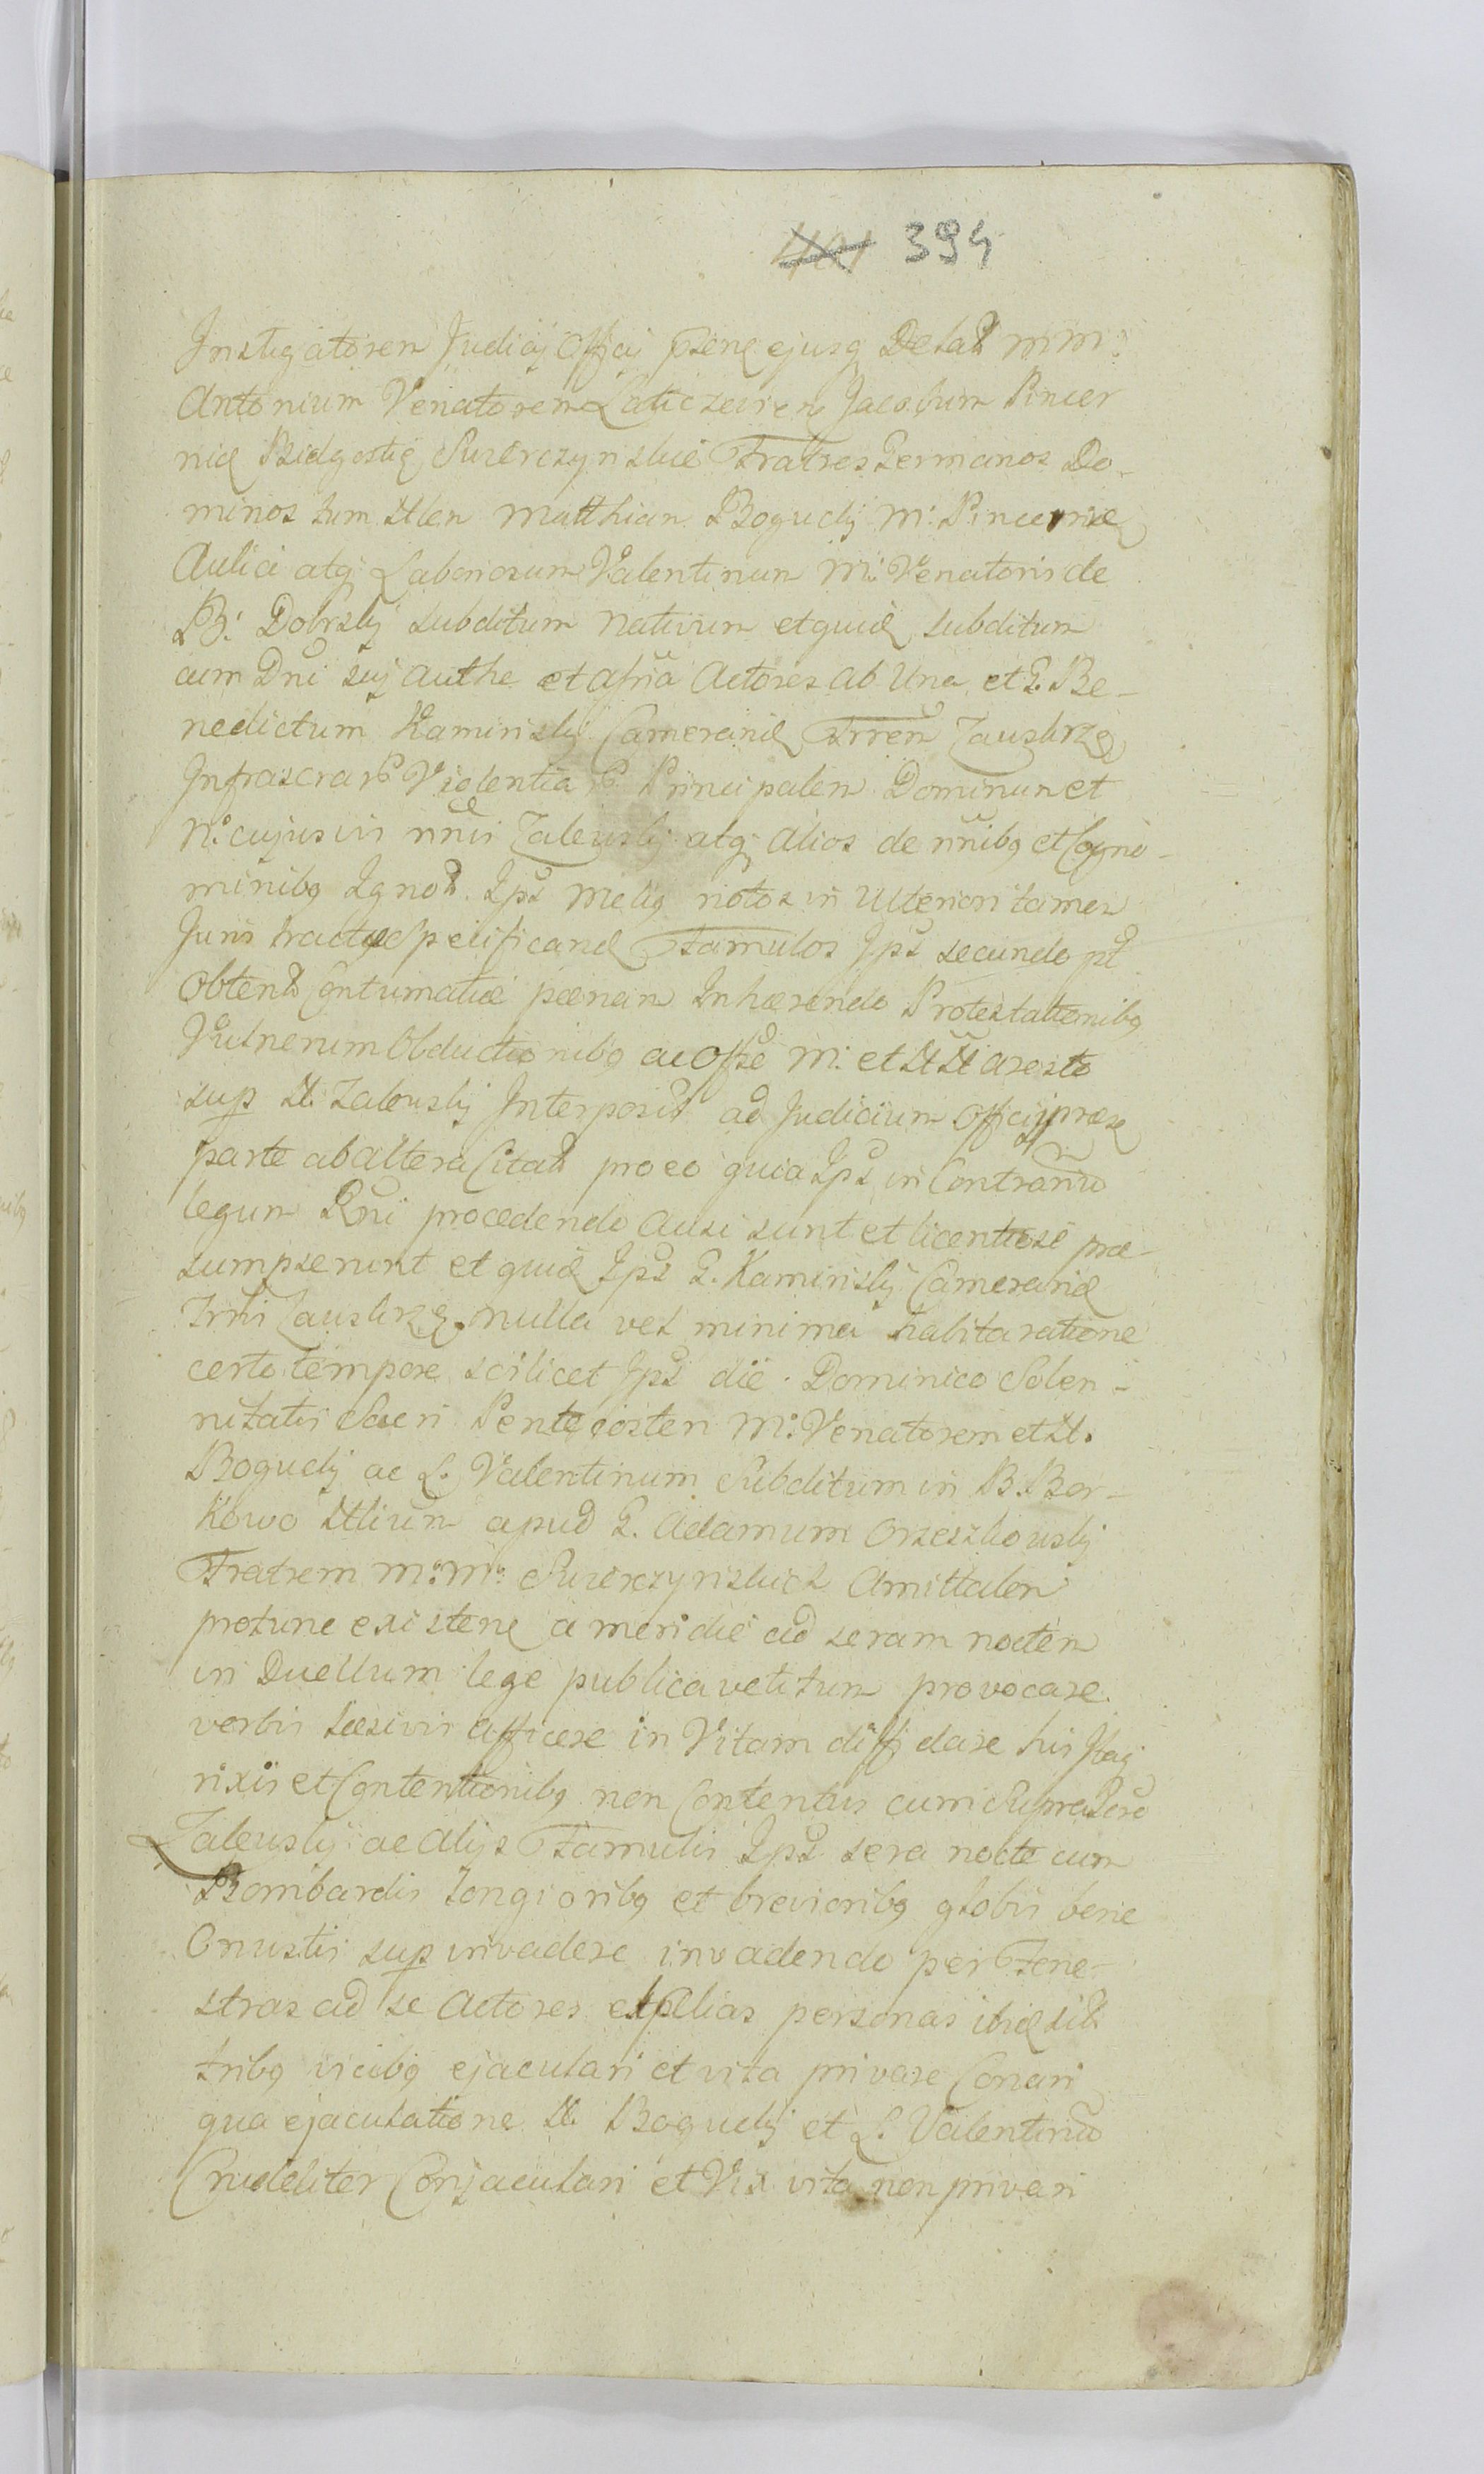 401 394
Instigatorem Judicij Officij psenc ejusq Delat MM:
Antonium Venatorem Laticzevien Jacobum Pincer
nid Bidgostię Swierczynskie Fratres Germanos Do-
minos tum Nlen Matthian Bogucky M: Pincernæ
Aulici atq Laboriosum Valentinum M: Venatoris de
B: Dobrsky subditum nativum et quid subditum
cum Dni suj authe et assria Actores ab Una et G. Be-
nedictum Kaminsky Camerarid Trren Zauskrzę
Infrascrar Violentiar Principalem Dominum et
N. cujusvis nnis Zalewsky atq alios de nnibq et Cogno-
minibq Ignot. Ips meliq notos in Ulteriori tamen
Juris tractu Specificand Famulos Ips secundo pt
obtent Contumatiæ pænam Inhærendo Protestationibq
Vulnerum Obductionibq ac Offse M. et NN aresto
sup N. Zalewsky Interposit ad Judicium Officij præse
parte ab altera Citat pro eo quia Ips in Contrariu
legum Rni procedendo ausi sunt et licentiose præ-
sumpserunt et quid Ips G. Kaminsky Camerarid
Trris Zauskrzę. nulla vel minima habita ratione
certo tempore scilicet Ips die Dominico Solen-
nitatis Sacri Pentecosten M: Venatorem et N.
Bogucky ac L. Valentinum Subditum in B. Bor-
kowo Nlium apud G. Adamum Orzeszkowsky
Fratrem M:M: Swierczynskich Amittalen
protunc existenc a meridie ad seram noctem
in Duellum lege publica vetitum provocare
verbis læsivis afficere in Vitam diffidare his Itaq
rixis et Contentionibq non Contentus cum Supra
Zalewsky ac alijs Famulis Ips sera nocte cum
Bombardis longioribq et brevioribq globis bene
Onustis sup invadere invadendo per Fene-
stras ad se Actores et alias personas ibid sit
tribq vicibq ejaculari et vita privare Conari
qua ejaculatione N. Bogucky et L. Valentinu
Crudeliter Conjaculari et Vix vita non privari